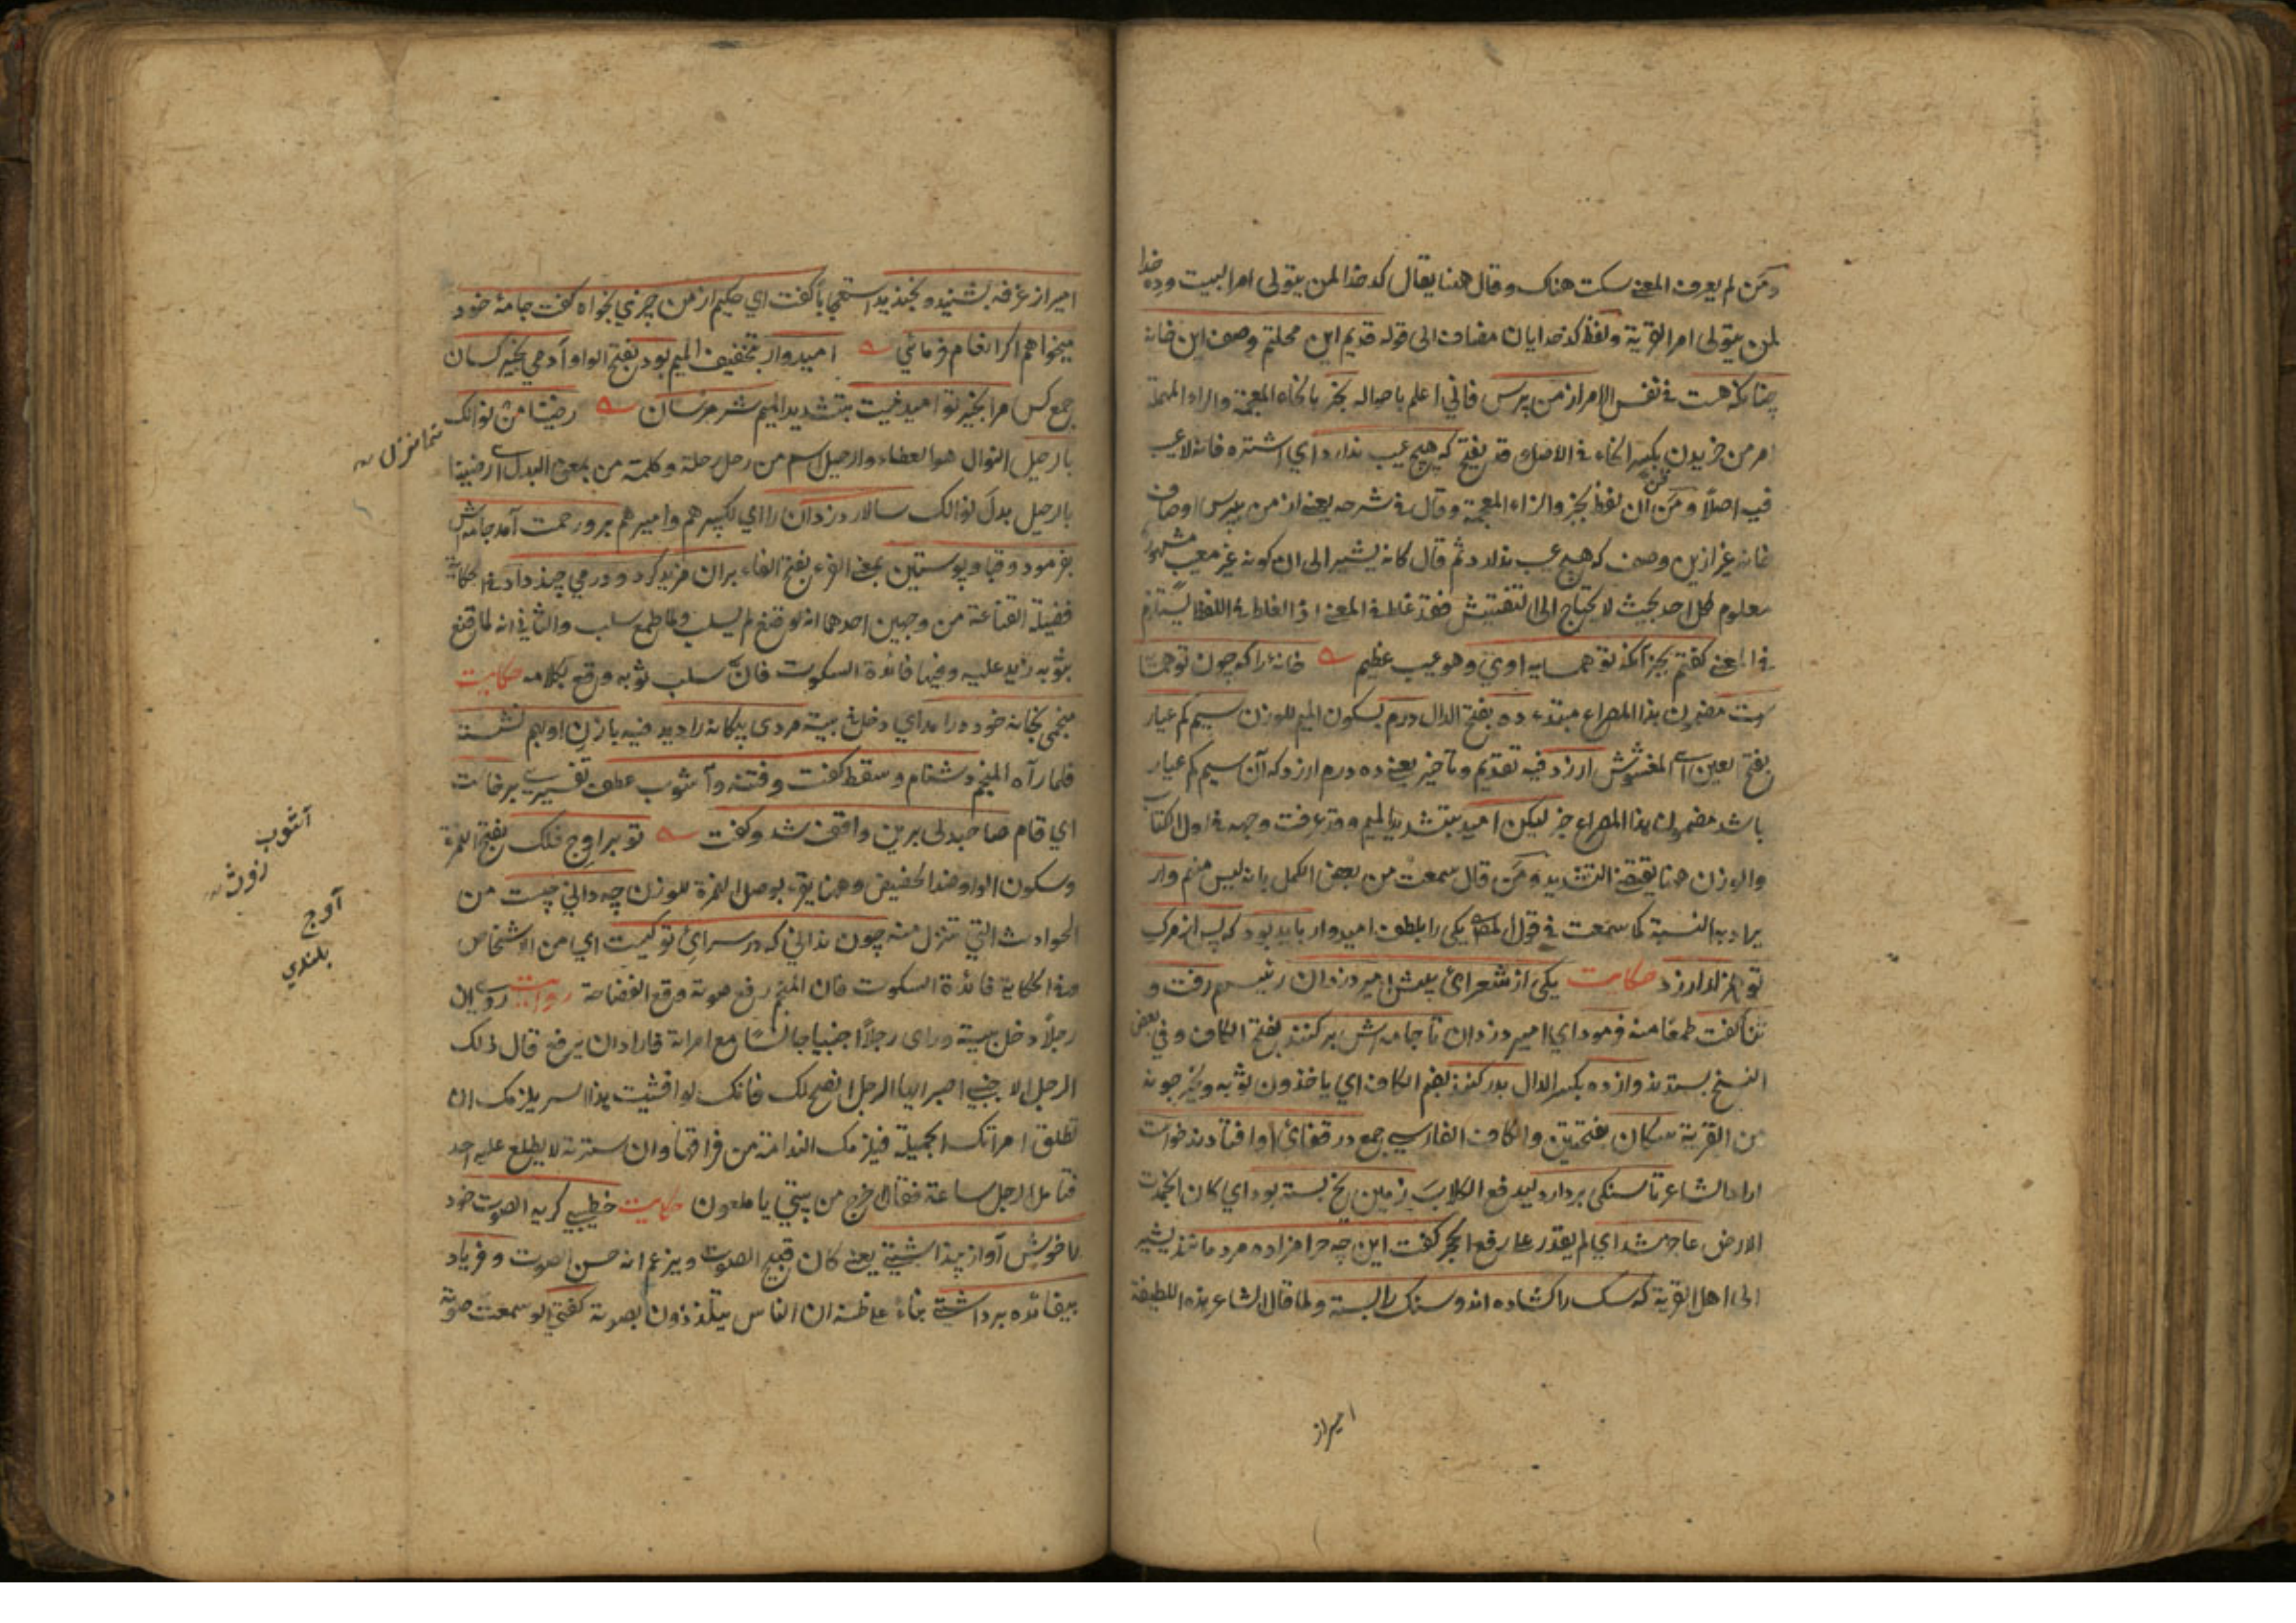 ومن لم يعرف المعنى سكت هناك وقال هنا يقال كدخدا لمن يتولى امر البيت وده خدا
لمن يتولى امر القرية ولفظ كدخدايان مضاف الى قوله قديم اين محلتم وصف اين خانه
چنانكه هست فى نفس الامر از من پرس فانى اعلم باحواله بخر بالخاء المعجمة والراء المهملة
امر من خريدن بكسر الخاء فى الاصل وقد يفتح كه هيچ عيب ندارد اى اشتره فانه لا عيب
فيه اصلًا ومن ظن ان لفظ بجز والزاء المعجمة وقال فى شرحه يعنى از من بپرس اوصاف
خانه غير ازين وصف كه هيچ عيب ندارد ثم قال كانه يشير الى ان كونه غير معيب مشهور
معلوم لكل احد بحيث لا يحتاج الى التفتيش فقد غلط فى المعنى اذ الغلط فى اللفظ يستلزم
فى المعنى كفتم بجز آنكه تو همسايه اوى وهو عيب عظيم خانه را كه چون تو همسايه
است مضمون هذا المصراع مبتدء ده بفتح الدال درم بسكون الميم للوزن سيم كم عيار
بفتح العين اى المغشوش ارزد فيه تقديم وتاخير يعنى ده درم ارزد كه آن سيم كم عيار
باشد مضمون هذا المصراع خبر ليكن اميد بتشديد الميم وقد عرفت وجهه فى اول الكتاب
والوزن هنا يقتضى التشديد ومن قال سمعت من بعض الكمل بانه ليس منم وار
يراد به النسبة كما سمعت فى قول المص يكى را بلطف اميدوار بايد بود كه پس از مرك
تو هزار ارزد حكايت يكى از شعراى پيش امير دزدان رئيسهم رفت و
ثنا كفت طمعًا منه فرمود اى امير دزدان تا جامه اش بر كنند بفتح الكاف وفى بعض
النسخ بستدند واز ده بكسر الدال بدر كنند بضم الكاف اى ياخذون ثوبه ويخرجونه
من القرية سكان بفتحتين والكاف الفارسى جمع در قفاى او افتادند خواست
اراد الشاعر تا سنكى بردارد ليدفع الكلاب زمين يخ بسته بود اى كان انجمدت
الارض عاجز شد اى لم يقدر على رفع الحجر كفت اين چه حرامزاده مردمانند يشير
الى اهل القرية كه سك را كشاده اند وسنك را بسته ولما قال الشاعر هذه اللطيفة
امير از
امير از غرفه بشنيد و بخنديد استعجابًا كفت اى حكيم از من چيزى بخواه كفت جامۀ خود
ميخواهم اكر انعام فرمائى اميدوار بتخفيف الميم بود بفتح الواو آدمى بخير كسان
جمع كس مرا بخير تو اميد نيست بتشديد الميم شر مرسان رضينا من نوالك
بالرحيل النوال هو العطاء والرحيل اسم من رحل رحلة وكلمة من بمعنى البدل اى رضينا
بالرحيل بدل نوالك سالار دزدان را اى لكبيرهم واميرهم برو رحمت آمد جامه اش
بفرمود وقبا و پوستين بمعنى الفرو بفتح الفاء بران مزيد كرد ودرمى چند داد فى الحكاية
فضيلة القناعة من وجهين احدهما انه لو قنع لم يسلب ولما طمع سلب والثانى انه لما قنع
بثوبه زيد عليه وفيها فائدة السكوت فان سلب ثوبه وقع بكلامه حكايت
منجمى بخانه خود درامد اى دخل فى بيته مردى بيكانه را ديد فيه با زن او بهم نشسته
فلما رآه المنجم دشنام و سقط كفت وفتنه و آشوب عطف تفسيرى برخاست
اى قام صاحبدلى برين واقف شد وكفت تو بر اوج فلك بفتح الهمزة
وسكون الواو ضد الحضيض وهنا يقرء بوصل الهمزة للوزن چه دانى چيست من
الحوادث التى تنزل منه چون ندانى كه در سراى تو كيست اى من الاشخاص
هذه الحكاية فائدة السكوت فان المنجم رفع صوته فوقع الفضاحة روايت روى ان
رجلًا دخل بيته وراى رجلًا اجنبيا جالسًا مع امراته فاراد ان يرفع قال ذلك
الرجل الاجنبى اصبر ايها الرجل انصح لك فانك لو افشيت هذا السر يلزمك ان
تطلق امراتك الجميلة فيلزمك الندامة من فراقها وان سترته لا يطلع عليه احد
فتامل الرجل ساعة فقال اخرج من بيتى يا ملعون حكايت خطيبى كريه الصوت خود
را خوش آواز پنداشتى يعنى كان قبيح الصوت ويزعم انه حسن الصوت وفرياد
بيفائده برداشتى بناء على ظنه ان الناس يتلذذون بصوته كفتى لو سمعت صوته
آشوب
آوج
بلندى